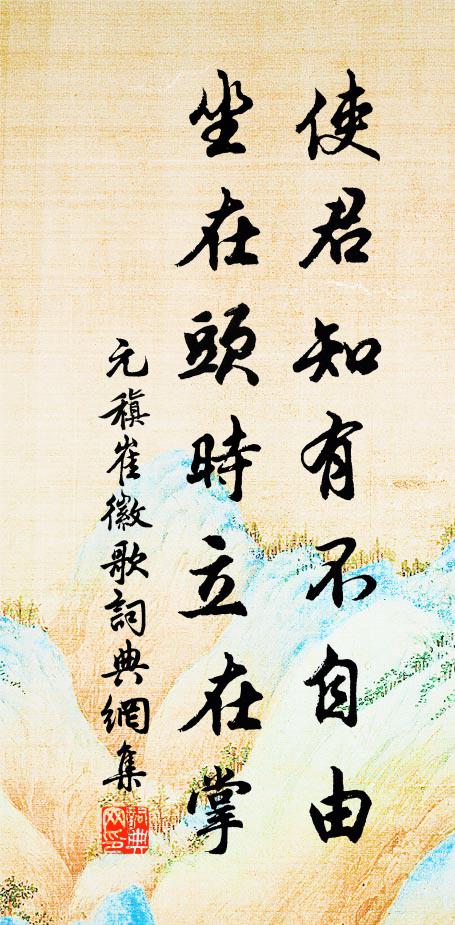 使君知有不自由
坐在頭時立在掌
元稹崔徽歌詞典網集
詞典網印